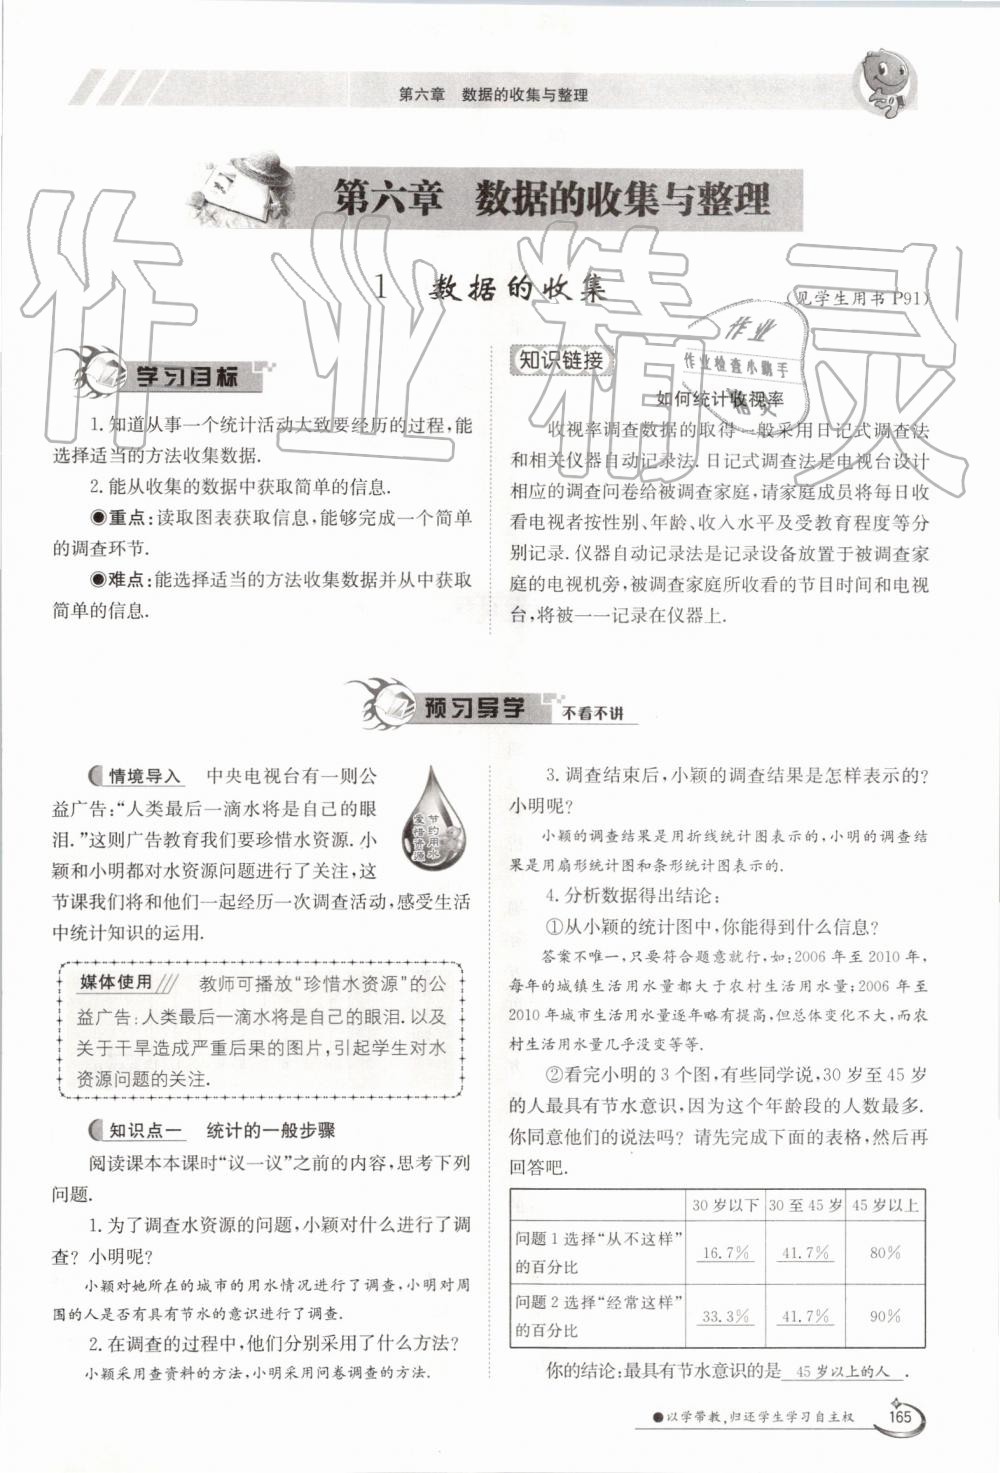 第六章 数据的收集与整理
第六章 数据的收集与整理
1 数据的收集
(见学生用书 P91)
学习目标
1. 知道从事一个统计活动大致要经历的过程,能
选择适当的方法收集数据.
2. 能从收集的数据中获取简单的信息.
●重点:读取图表获取信息,能够完成一个简单
的调查环节.
●难点:能选择适当的方法收集数据并从中获取
简单的信息.
知识链接
如何统计收视率
收视率调查数据的取得一般采用日记式调查法
和相关仪器自动记录法. 日记式调查法是电视台设计
相应的调查问卷给被调查家庭,请家庭成员将每日收
看电视者按性别、年龄、收入水平及受教育程度等分
别记录. 仪器自动记录法是记录设备放置于被调查家
庭的电视机旁,被调查家庭所收看的节目时间和电视
台,将被一一记录在仪器上.
作业精灵
作业
作业检查小助手
精灵
预习导学 不看不讲
情境导入 中央电视台有一则公
益广告:“人类最后一滴水将是自己的眼
泪.”这则广告教育我们要珍惜水资源. 小
颖和小明都对水资源问题进行了关注,这
节课我们将和他们一起经历一次调查活动,感受生活
中统计知识的运用.
节约用水
爱惜资源
媒体使用 教师可播放“珍惜水资源”的公
益广告:人类最后一滴水将是自己的眼泪. 以及
关于干旱造成严重后果的图片,引起学生对水
资源问题的关注.
知识点一 统计的一般步骤
阅读课本本课时“议一议”之前的内容,思考下列
问题.
1. 为了调查水资源的问题,小颖对什么进行了调
查? 小明呢?
小颖对她所在的城市的用水情况进行了调查,小明对周
围的人是否有具有节水的意识进行了调查.
2. 在调查的过程中,他们分别采用了什么方法?
小颖采用查资料的方法,小明采用问卷调查的方法.
3. 调查结束后,小颖的调查结果是怎样表示的?
小明呢?
小颖的调查结果是用折线统计图表示的,小明的调查结
果是用扇形统计图和条形统计图表示的.
4. 分析数据得出结论:
①从小颖的统计图中,你能得到什么信息?
答案不唯一,只要符合题意就行,如:2006 年至 2010 年,
每年的城镇生活用水量都大于农村生活用水量;2006 年至
2010 年城市生活用水量逐年略有提高,但总体变化不大,而农
村生活用水量几乎没变等等.
②看完小明的 3 个图,有些同学说,30 岁至 45 岁
的人最具有节水意识,因为这个年龄段的人数最多.
你同意他们的说法吗? 请先完成下面的表格,然后再
回答吧.
30 岁以下 30 至 45 岁 45 岁以上
问题 1 选择“从不这样”
的百分比 16.7% 41.7% 80%
问题 2 选择“经常这样”
的百分比 33.3% 41.7% 90%
你的结论:最具有节水意识的是 45 岁以上的人 .
●以学带教,归还学生学习自主权
165